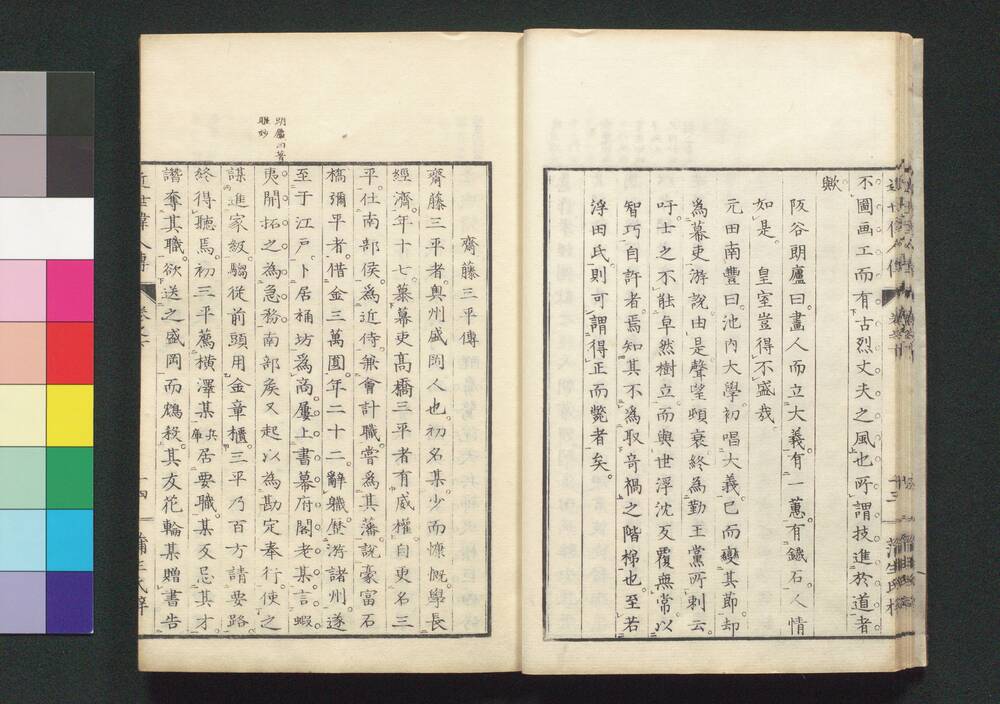 不圖画工而有古烈丈夫之風也所謂技進於道者
歟
阪谷朗廬曰畫人而立大義有一蕙有鐵石人情
如是皇室豈得不盛哉
元田南豐曰池内大學初唱大義已而變其節却
為幕吏游説由是聲望頓衰終為勤王黨所刺云
吁士之不能卓然樹立而與世浮沈反覆無常以
智巧自許者焉知其不為取奇禍之階梯也至若
浮田氏則可謂得正而斃者矣
齋藤三平傳
齋藤三平者奧州盛岡人也初名某少而慷慨學長
經濟年十七慕幕吏高橋三平者有威權自更名三
平仕南部侯為近侍兼會計職嘗為其藩說豪富石
橋彌平者借金三萬圓年二十二辭職歷游諸州遂
至于江戸卜居桶坊為商屢上書幕府閣老某言蝦
夷開拓之為急務南部矦又起以為勘定奉行使之
謀進家級騶從前頭用金章櫃三平乃百方請要路
終得聽焉初三平薦横澤某兵庫居要職某反忌其才
譖奪其職欲送之盛岡而鴆殺其友花輪某贈書告
朗廬曰著
雖妙
近世偉人傳
十四
蒲生氏梓